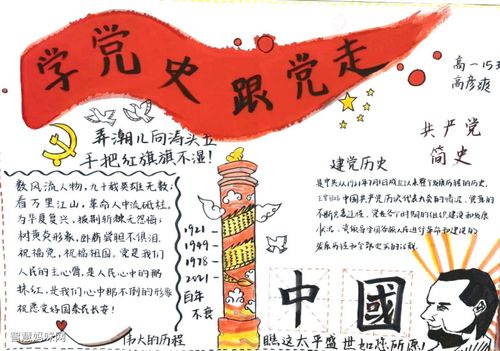 学党史跟党走
高一15班
高彦爽
弄潮儿向涛头立
手把红旗旗不湿!
共产党
简史
建党历史
数风流人物,九十载英雄无数;
看万里江山,革命人中流砥柱。
为华夏复兴,披荆斩棘无怨悔;
树英烈形象,卧薪尝胆不惧泪。
祝福党,祝福祖国,党是我们
人民的主心骨,是人民心中的鹅
抹红,是我们心中那不倒的形象
祝愿党好国泰民长安!
1921
1949
1978
2021
百年
不衰
是中共从1921年7月1日成立以来整个发展历程的历史,
中国共产党历次代表大会的情况,党章的
不断完善过程,党在各个时期的组织建设和发展
状况,党领导全国各族人民进行革命和建设的
中國
伟大的历程
瞧这太平盛世如您所愿!
智慧妈咪网